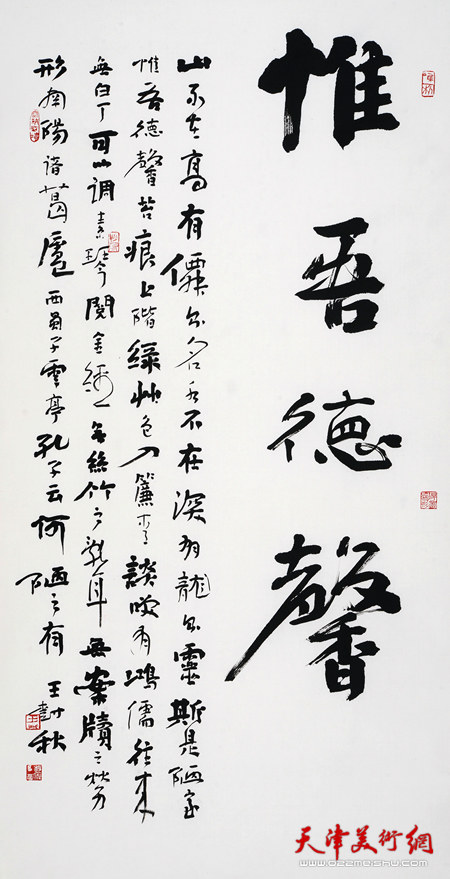 惟吾德馨
山不在高有僊則名水不在深有龍則靈斯是陋室
惟吾德馨苔痕上階綠艸色入簾青談笑有鴻儒往來
無白丁可以調素琴閱金經無絲竹之亂耳無案牘之勞
形南陽諸葛廬西蜀子雲亭孔子云何陋之有 王樹秋
天津美術網
www.022meishu.com